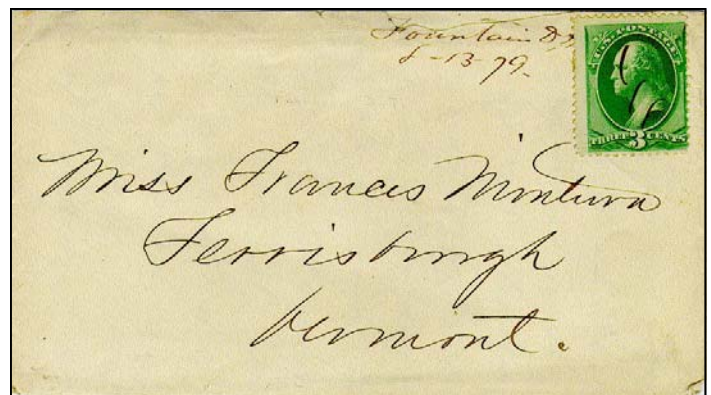 Fountain
8-13-79.
U.S. POSTAGE
THREE 3 CENTS
Miss Frances Minturn
Ferrisburgh
Vermont.